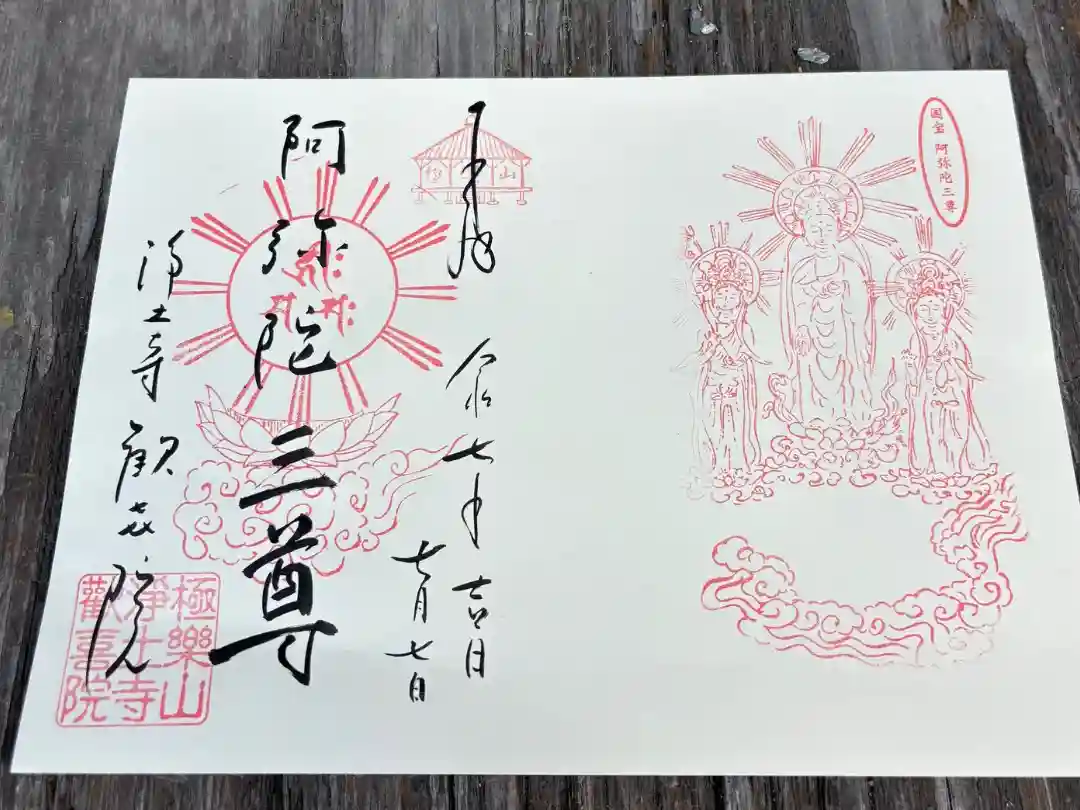 国宝 阿弥陀三尊
令和七年 吉日
七月七日
阿弥陀三尊
浄土寺 歓喜院
極樂山
淨土寺
歡喜院